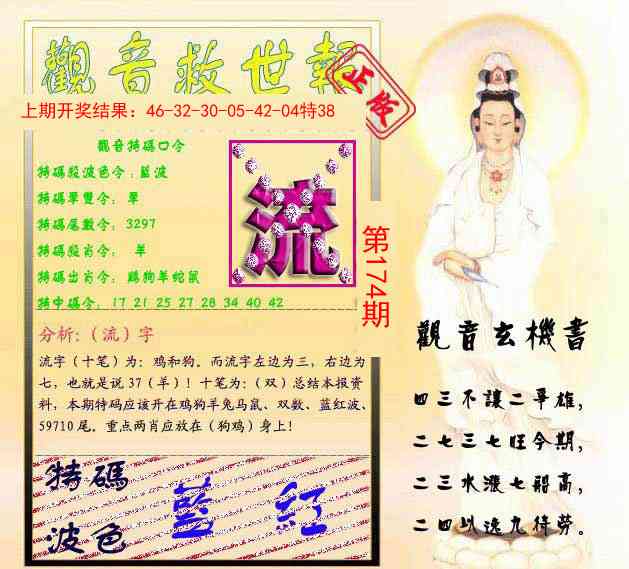 觀音救世報
正版
上期开奖结果：46-32-30-05-42-04特38
觀音特碼口令
特碼段波色令：藍波
特碼單雙令： 單
特碼尾數令： 3297
特碼殺肖令： 羊
特碼出肖令： 鷄狗羊蛇鼠
特中碼令： 17 21 25 27 28 34 40 42
流
第174期
分析:（流）字
流字（十笔）为：鸡和狗。而流字左边为三，右边为
七，也就是说 37（羊）！十笔为:（双）总结本报资
料，本期特码应该开在鸡狗羊兔马鼠、双数、蓝红波、
59710 尾。重点两肖应放在（狗鸡）身上！
特碼
波色
藍 紅
觀音玄機書
四三不讓二爭雄，
二七三七旺今期，
二三水漲七韶高，
二四以逸九待勞。